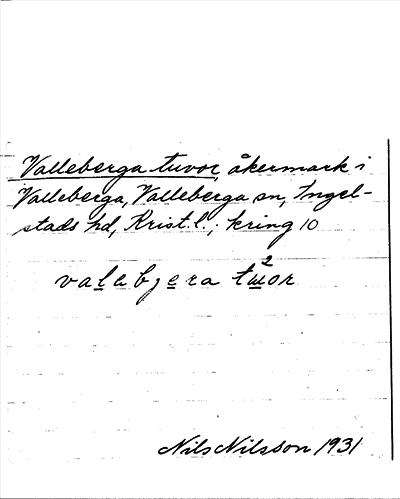 Valleberga tuvor, åkermark i
Valleberga, Valleberga sn, Ingel-
stads hd, Krist. l.; kring 10
valabjera tu²or
Nils Nilsson 1931